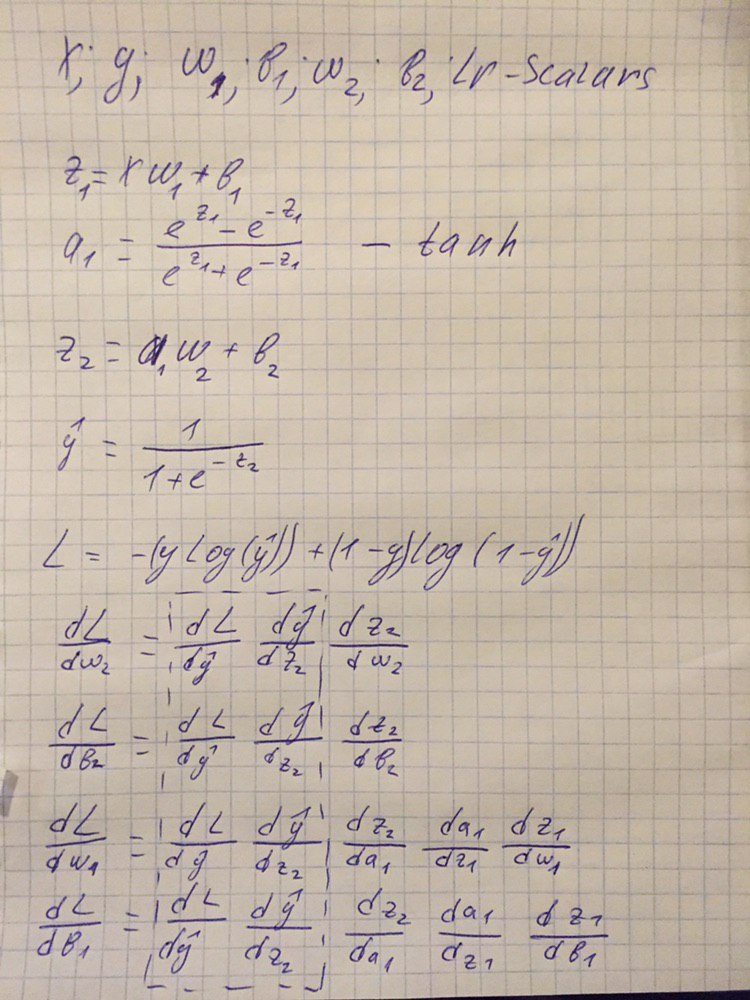 x; y; w₁; b₁; w₂; b₂; Lr - Scalars
z₁ = x w₁ + b₁
a₁ = (e^{z₁} - e^{-z₁}) / (e^{z₁} + e^{-z₁}) - tanh
z₂ = a₁ w₂ + b₂
ŷ = 1 / (1 + e^{-z₂})
L = -(y Log(ŷ)) + (1 - y) Log(1 - ŷ))
dL/dw₂ = dL/dŷ dŷ/dz₂ dz₂/dw₂
dL/db₂ = dL/dŷ dŷ/dz₂ dz₂/db₂
dL/dw₁ = dL/dŷ dŷ/dz₂ dz₂/da₁ da₁/dz₁ dz₁/dw₁
dL/db₁ = dL/dŷ dŷ/dz₂ dz₂/da₁ da₁/dz₁ dz₁/db₁